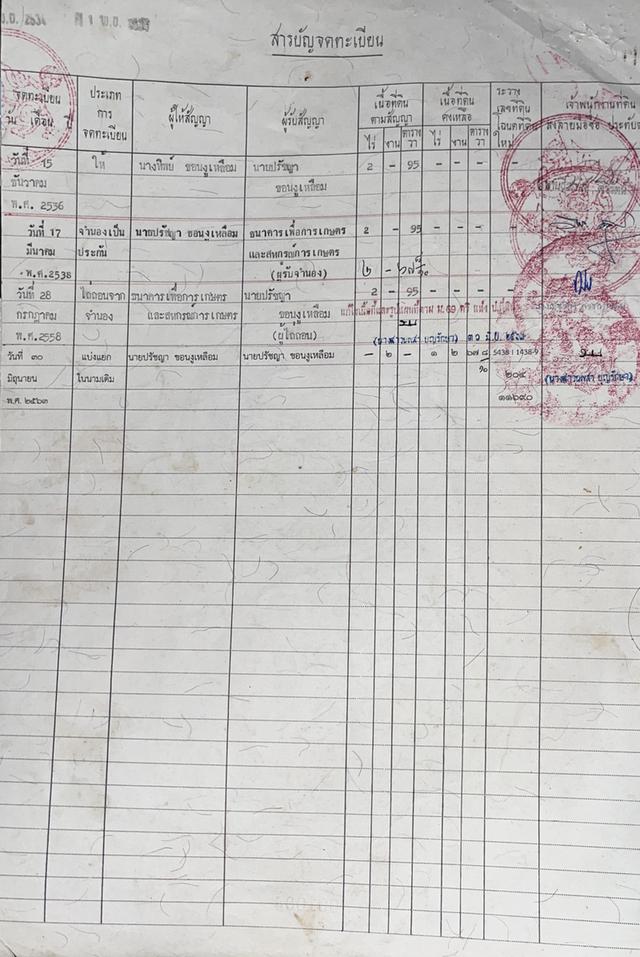 สารบัญจดทะเบียน
จดทะเบียน วัน เดือน ปี
ประเภท การ จดทะเบียน
ผู้ให้สัญญา
ผู้รับสัญญา
เนื้อที่ดิน ตามสัญญา
ไร่ งาน ตาราง วา
เนื้อที่ดิน คงเหลือ
ไร่ งาน ตาราง วา
ระวาง เลขที่ดิน โฉนดที่ดิน ใหม่
เจ้าพนักงานที่ดิน ลงลายมือชื่อ ประทับ
วันที่ 15 ให้ นางทิพย์ ขอนงูเหลือม นายปรัชญา 2 - 95 - - - -
ธันวาคม ขอนงูเหลือม
พ.ศ. 2536
วันที่ 17 จำนองเป็น นายปรัชญา ขอนงูเหลือม ธนาคารเพื่อการเกษตร 2 - 95 - - - -
มีนาคม ประกัน และสหกรณ์การเกษตร
พ.ศ.2538 (ผู้รับจำนอง) ๒ -
วันที่ 28 ไถ่ถอนจาก ธนาคารเพื่อการเกษตร นายปรัชญา 2 - 95 - - - -
กรกฎาคม จำนอง และสหกรณ์การเกษตร ขอนงูเหลือม
พ.ศ.2558 (ผู้ไถ่ถอน) ๓๐ มิ.ย.
วันที่ ๓๐ แบ่งแยก นายปรัชญา ขอนงูเหลือม นายปรัชญา ขอนงูเหลือม - ๒ - ๑ ๒ ๖๗ ๘/๑๐ 5438 I 1438-9
มิถุนายน ในนามเดิม ๒๐๔
พ.ศ. ๒๕๖๓ ๑๑๖๙๐